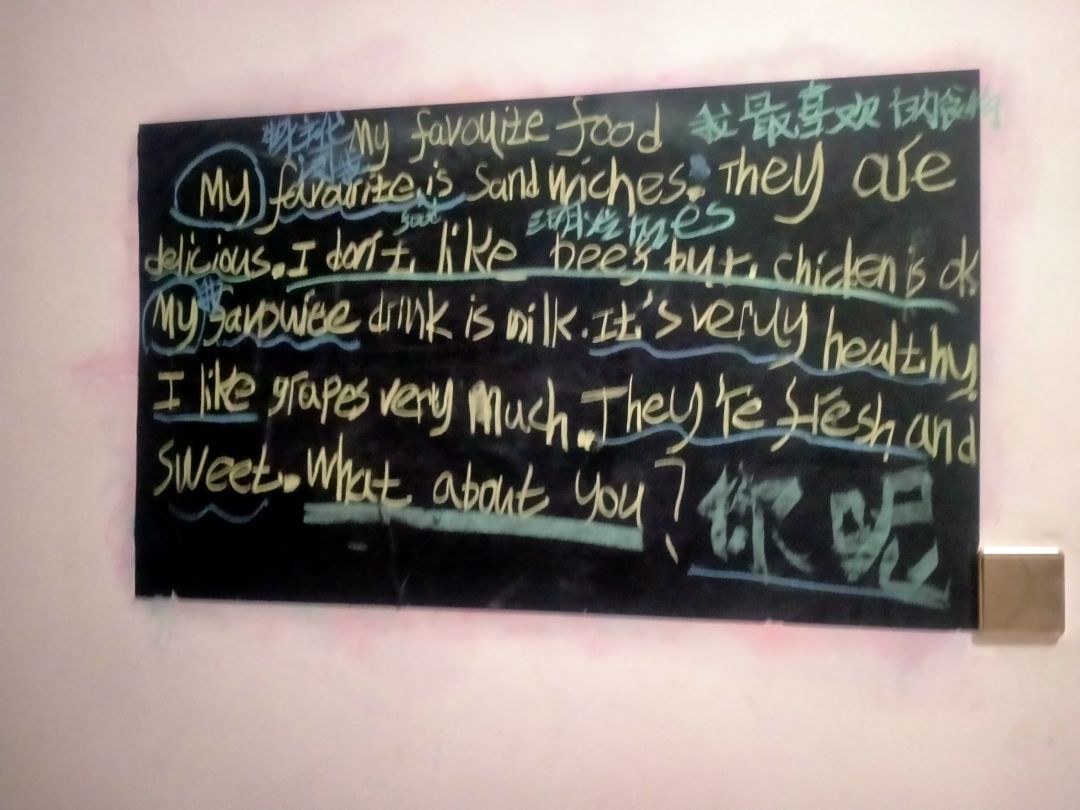 My favourite food 我最喜欢的食物
My favourite is Sandwiches. They are
三明治
delicious. I don't like beef but, chicken is ok
My favowite drink is milk. It's veruy healthy.
I like grapes very Much. They're fresh and
Sweet. What about you? 你呢